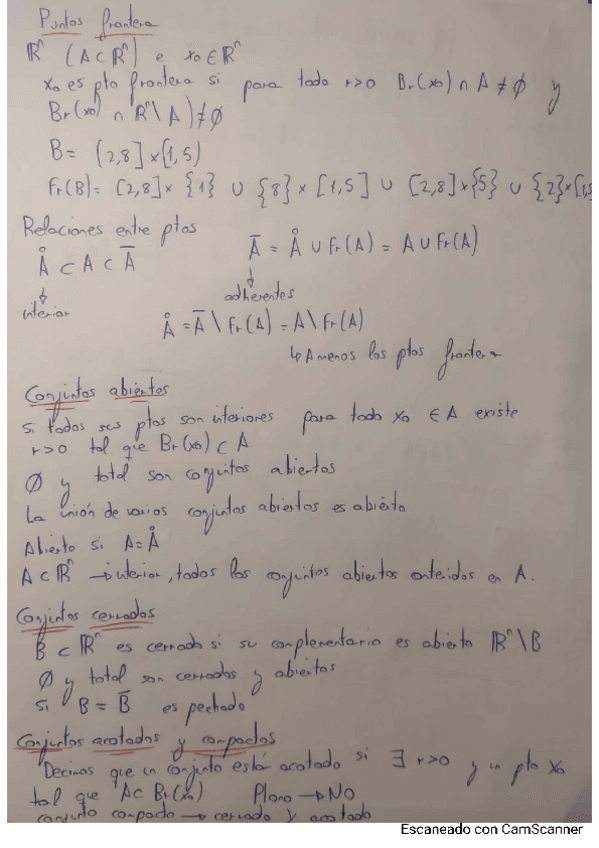 Puntos frontera
ℝⁿ (A⊂ℝⁿ) e x₀∈ℝⁿ
x₀ es pto frontera si para todo r>0 Br(x₀)∩A≠∅ y
Br(x₀)∩ℝⁿ\A)≠∅
B=(2,8]×[1,5)
Fr(B)=[2,8]×{1} ∪ {8}×[1,5] ∪ [2,8]×{5} ∪ {2}×[1,5
Relaciones entre ptos
Å⊂A⊂A̅ A̅=Å∪Fr(A)=A∪Fr(A)
↓ interior ↓ adherentes
Å=A̅\Fr(A)=A\Fr(A)
↳A menos los ptos frontera
Conjuntos abiertos
Si todos sus ptos son interiores para todo x₀ ∈A existe
r>0 tal que Br(x₀)⊂A
∅ y total son conjuntos abiertos
La unión de varios conjuntos abiertos es abierto
Abierto si A=Å
A⊂ℝⁿ →interior, todos los conjuntos abiertos contenidos en A.
Conjuntos cerrados
B⊂ℝⁿ es cerrado si su complementario es abierto ℝⁿ\B
∅ y total son cerrados y abiertos
Si B=B̅ es pechado
Conjuntos acotados y compactos
Decimos que un conjunto está acotado si ∃ r>0 y un pto x₀
tal que A⊂Br(x₀) Plano→NO
conjunto compacto→cerrado y acotado
Escaneado con CamScanner